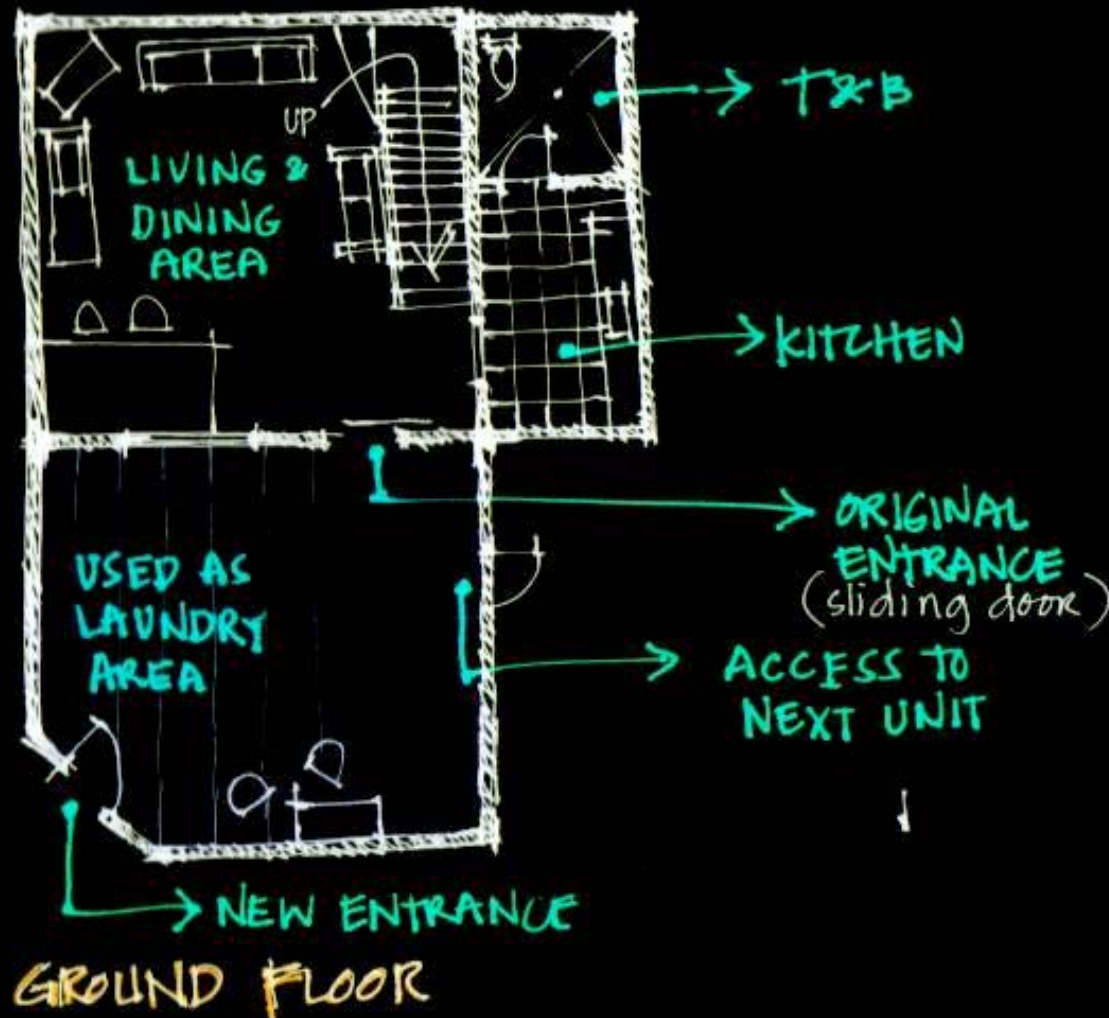 T&B
UP
LIVING &
DINING
AREA
KITCHEN
ORIGINAL
ENTRANCE
(sliding door)
USED AS
LAUNDRY
AREA
ACCESS TO
NEXT UNIT
NEW ENTRANCE
GROUND FLOOR